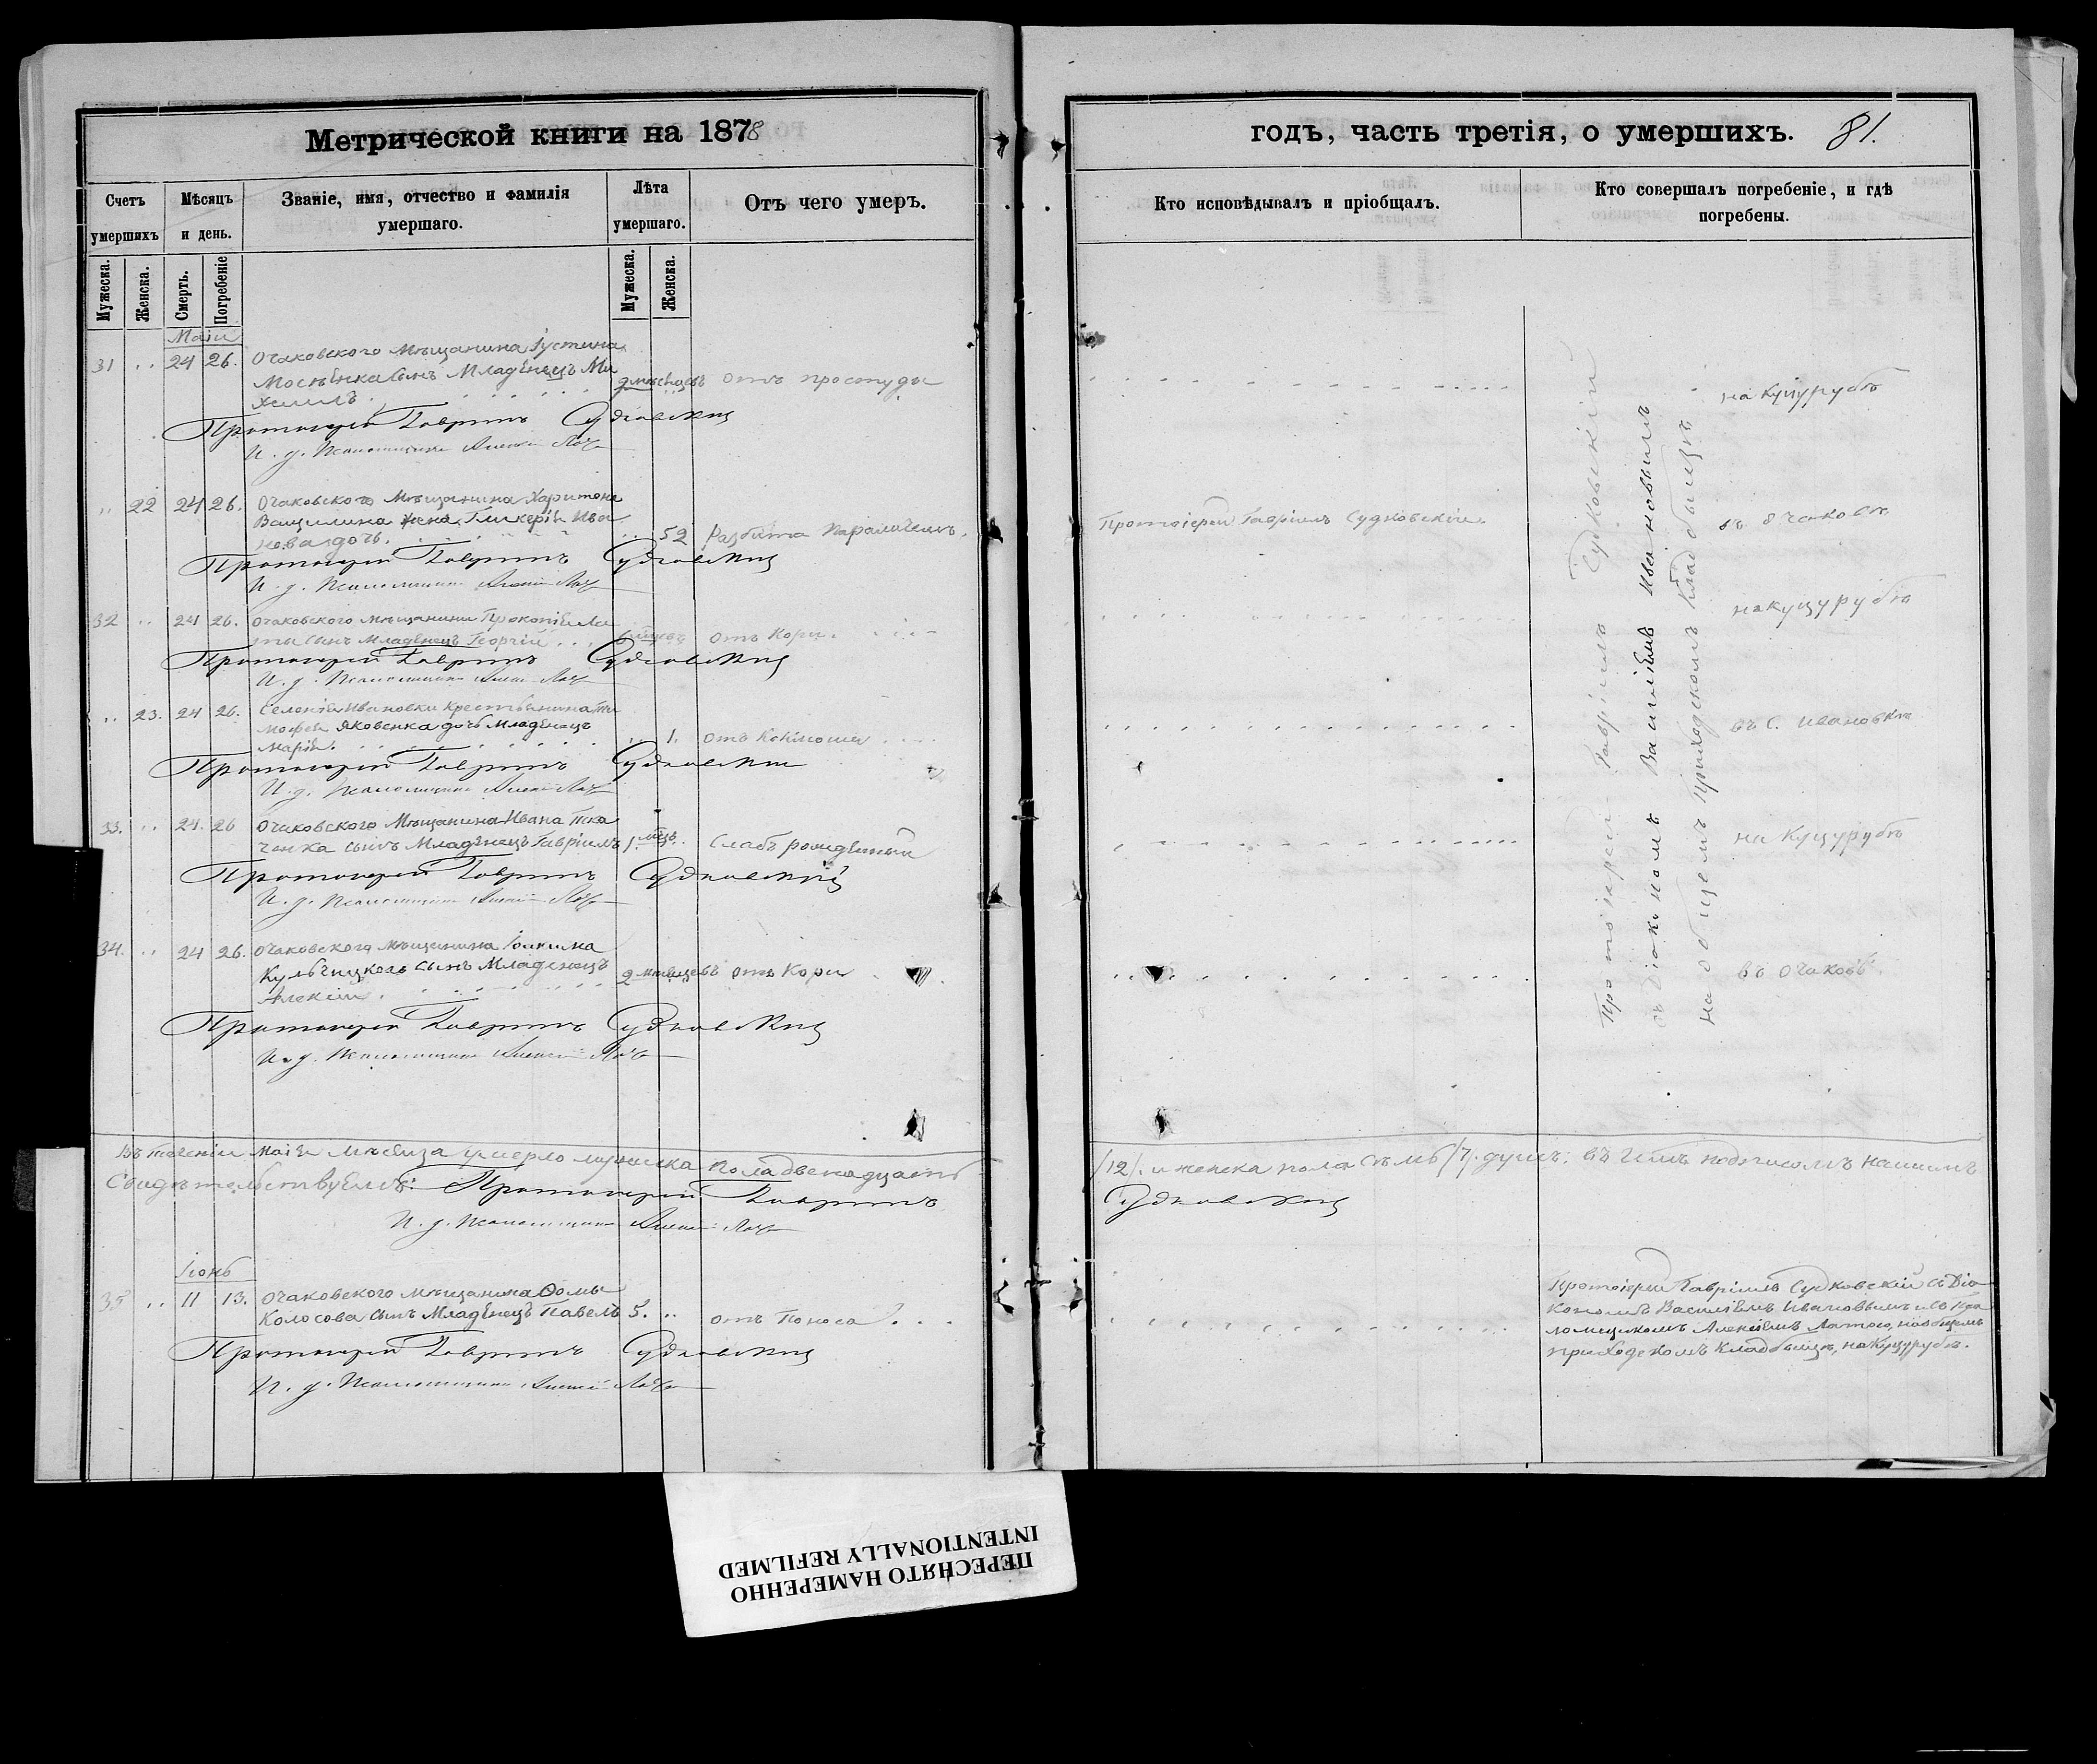 Метрической книги на 1878
Счетъ умершихъ
Мѣсяцъ и день.
Званіе, имя, отчество и фамилія умершаго.
Лѣта умершаго.
Отъ чего умеръ.
Мужеска.
Женска.
Смерть.
Погребеніе
Мужеска.
Женска.
Маій
31 .. 24 26. Очаковского мѣщанина Іустина
сынъ Младенецъ Ми
хаилъ. мѣсяцевъ отъ простуды
Протоіерей Гавріилъ Судковскій
И. д. Псаломщика Алексѣй
.. 22 24 26. Очаковского Мѣщанина Харитона
жена Гликерія Ива
нова дочь. .. 52 Разбита параличемъ.
Протоіерей Гавріилъ Судковскій
И. д. Псаломщика Алексѣй
32 .. 24 26. Очаковского мѣщанина Прокопія Ла
ты сынъ Младенецъ Георгій отъ Кори.
Протоіерей Гавріилъ Судковскій
И. д. Псаломщика Алексѣй
.. 23. 24 26. Селенія Ивановки Крестьянина Ти
мофея Яковенка дочь Младенецъ
Марія. .. 1. отъ
Протоіерей Гавріилъ Судковскій
И. д. Псаломщика Алексѣй
33. .. 24. 26 Очаковского Мѣщанина Ивана Тка
ченка сынъ Младенецъ Гавріилъ 1. мѣц. Слабъ рожденный
Протоіерей Гавріилъ Судковскій
И. д. Псаломщика Алексѣй
34. .. 24 26. Очаковского мѣщанина Іоакима
Кульчицкого сынъ Младенецъ
Алексій. 2 мѣсяцевъ отъ Кори
Протоіерей Гавріилъ Судковскій
И. д. Псаломщика Алексѣй
Въ теченіи Маія мѣсяца умерло мужеска пола двенадцать
Свидѣтельствуемъ: Протоіерей Гавріилъ
И. д. Псаломщика Алексѣй
Іюнь
35 .. 11 13. Очаковского мѣщанина Ѳомы
Колосова сынъ Младенецъ Павелъ 5. .. отъ Поноса.
Протоіерей Гавріилъ Судковскій
И. д. Псаломщика Алексѣй
годъ, часть третія, о умершихъ. 81.
Кто исповѣдывалъ и пріобщалъ.
Кто совершалъ погребеніе, и гдѣ погребены.
на Куцурубѣ
Протоіерей Гавріилъ Судковскій.
въ Очаковѣ
на Куцурубѣ
въ с. Ивановкѣ
на Куцурубѣ
въ Очаковѣ.
Протоіерей Гавріилъ Судковскій
съ Діакономъ Василіемъ Ивановымъ
на общемъ приходскомъ кладбищѣ
/12/. и женска пола семь /7/. душъ; въ чемъ подписомъ нашимъ
Судковскій
Протоіерей Гавріилъ Судковскій съ Діа
кономъ Василіемъ Ивановымъ и съ Пса
ломщикомъ Алексіемъ Латою, на общемъ
приходскомъ Кладбищѣ, на Куцурубѣ.
ПЕРЕСНЯТО НАМЕРЕННО
INTENTIONALLY REFILMED